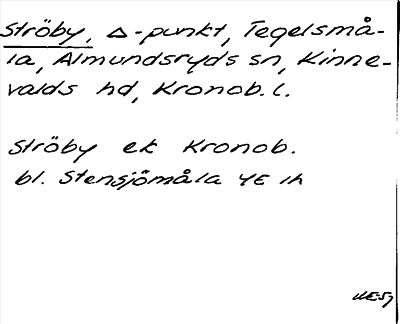 Ströby, Δ-punkt, Tegelsmå-
la, Almundsryds sn, Kinne-
valds hd, Kronob. l.
Ströby ek Kronob.
bl. Stensjömåla 4E 1h